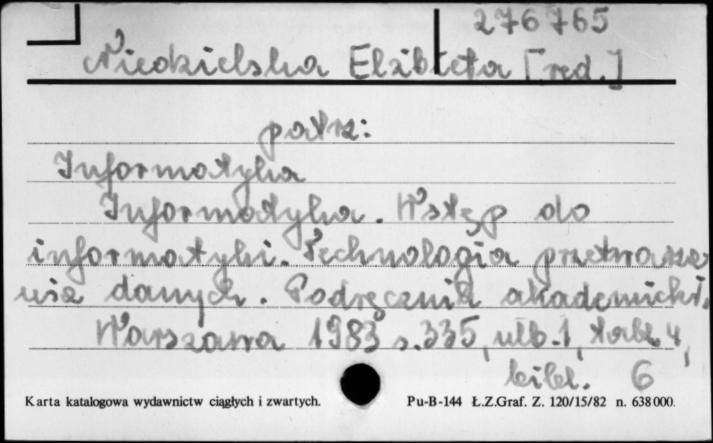 276765
Niedzielska Elżbieta [red.]
patrz:
Informatyka
Informatyka. Wstęp do
informatyki. Technologia przetwarza
nia danych. Podręcznik akademicki.
Warszawa 1983 s. 335, nlb. 1, tabl. 4,
bibl. 6
Karta katalogowa wydawnictw ciągłych i zwartych. Pu-B-144 Ł.Z.Graf. Z. 120/15/82 n. 638000.